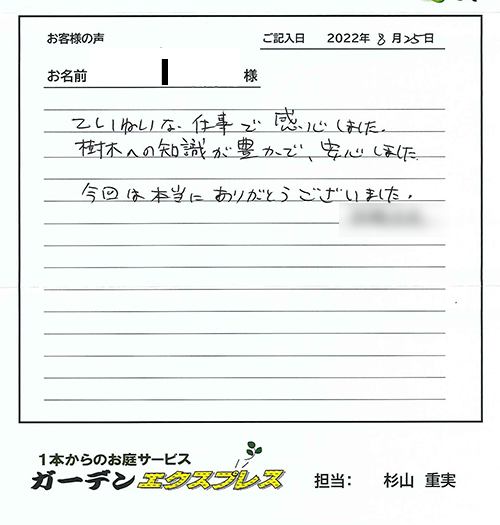 お客様の声
ご記入日 2022年 8月25日
お名前 様
ていねいな仕事で感心しました。
樹木への知識が豊かで、安心しました
今回は本当にありがとうございました。
1本からのお庭サービス
ガーデンエクスプレス
担当: 杉山 重実